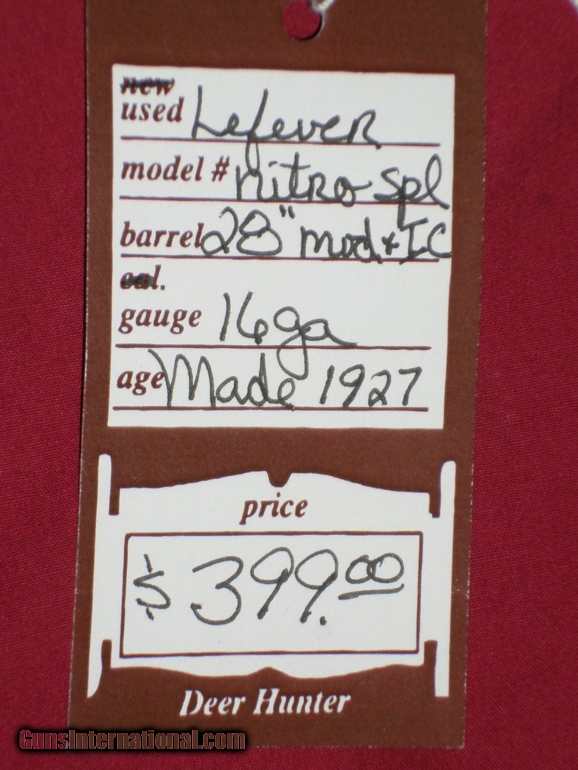 new
used Lefever
model # nitro spl
barrel 28" mod + IC
cal.
gauge 16ga
age Made 1927
price
$399.00
Deer Hunter
GunsInternational.com